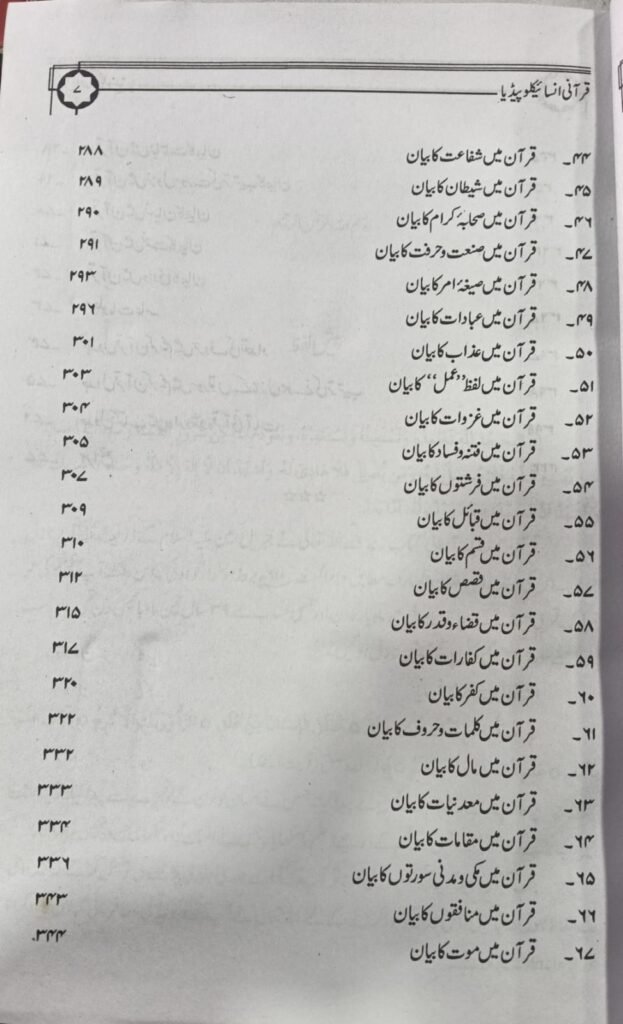 قرآنی انسائیکلوپیڈیا ۷
۴۴۔ قرآن میں شفاعت کا بیان ۲۸۸
۴۵۔ قرآن میں شیطان کا بیان ۲۸۹
۴۶۔ قرآن میں صحابۂ کرام کا بیان ۲۹۰
۴۷۔ قرآن میں صنعت و حرفت کا بیان ۲۹۱
۴۸۔ قرآن میں صیغۂ امر کا بیان ۲۹۳
۴۹۔ قرآن میں عبادات کا بیان ۲۹۶
۵۰۔ قرآن میں عذاب کا بیان ۳۰۱
۵۱۔ قرآن میں لفظ ’’عمل‘‘ کا بیان ۳۰۳
۵۲۔ قرآن میں غزوات کا بیان ۳۰۴
۵۳۔ قرآن میں فتنہ و فساد کا بیان ۳۰۵
۵۴۔ قرآن میں فرشتوں کا بیان ۳۰۷
۵۵۔ قرآن میں قبائل کا بیان ۳۰۹
۵۶۔ قرآن میں قسم کا بیان ۳۱۰
۵۷۔ قرآن میں قصص کا بیان ۳۱۲
۵۸۔ قرآن میں قضاء و قدر کا بیان ۳۱۵
۵۹۔ قرآن میں کفارات کا بیان ۳۱۷
۶۰۔ قرآن میں کفر کا بیان ۳۲۰
۶۱۔ قرآن میں کلمات و حروف کا بیان ۳۲۲
۶۲۔ قرآن میں مال کا بیان ۳۳۲
۶۳۔ قرآن میں معدنیات کا بیان ۳۳۳
۶۴۔ قرآن میں مقامات کا بیان ۳۳۴
۶۵۔ قرآن میں مکی و مدنی سورتوں کا بیان ۳۳۶
۶۶۔ قرآن میں منافقوں کا بیان ۳۴۳
۶۷۔ قرآن میں موت کا بیان ۳۴۴